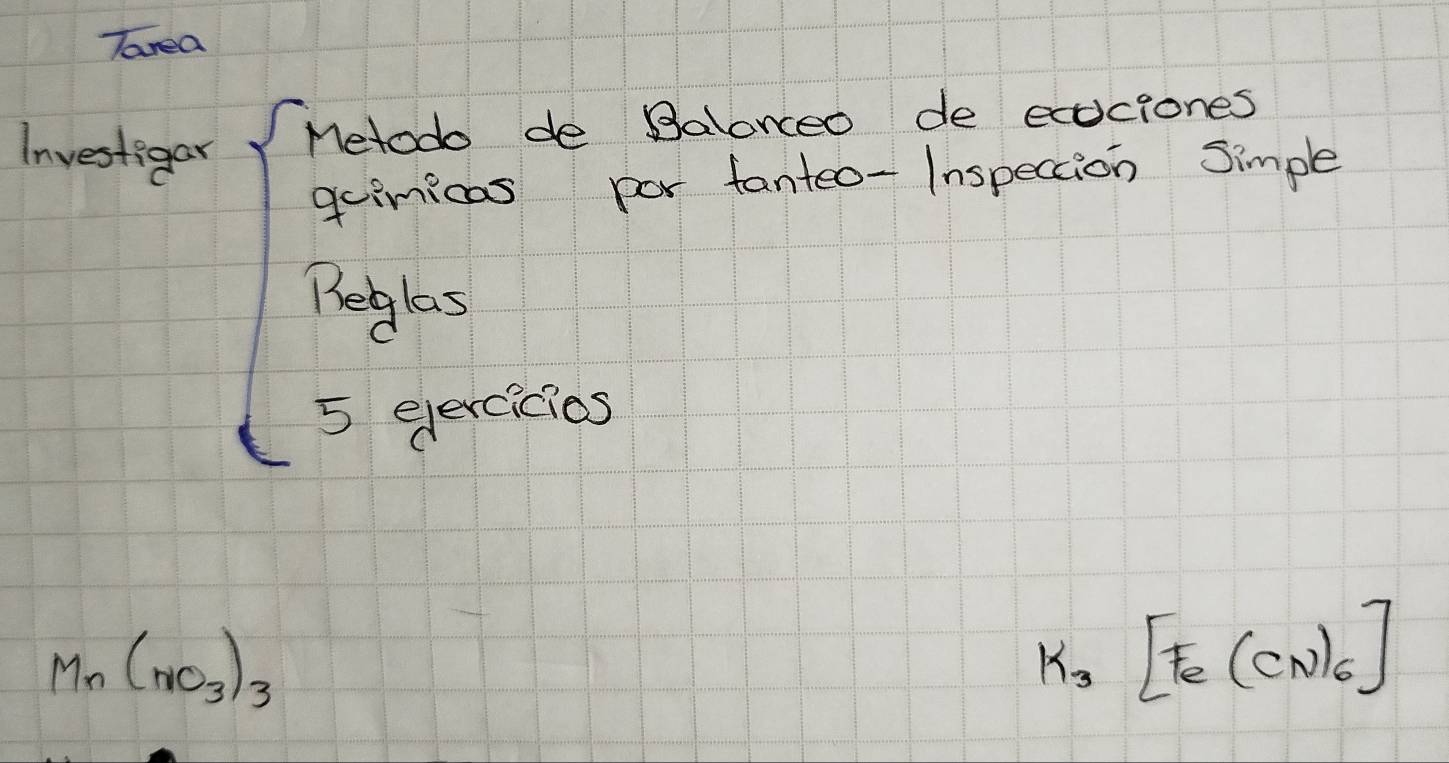 Tarea
Investigar
Metodo de Balanceo de ecuciones
quimicas por tanteo- Inspección Simple
Reglas
5 ejercicios
Mn (NO₃)₃
K₃ [Fe (CN)₆]